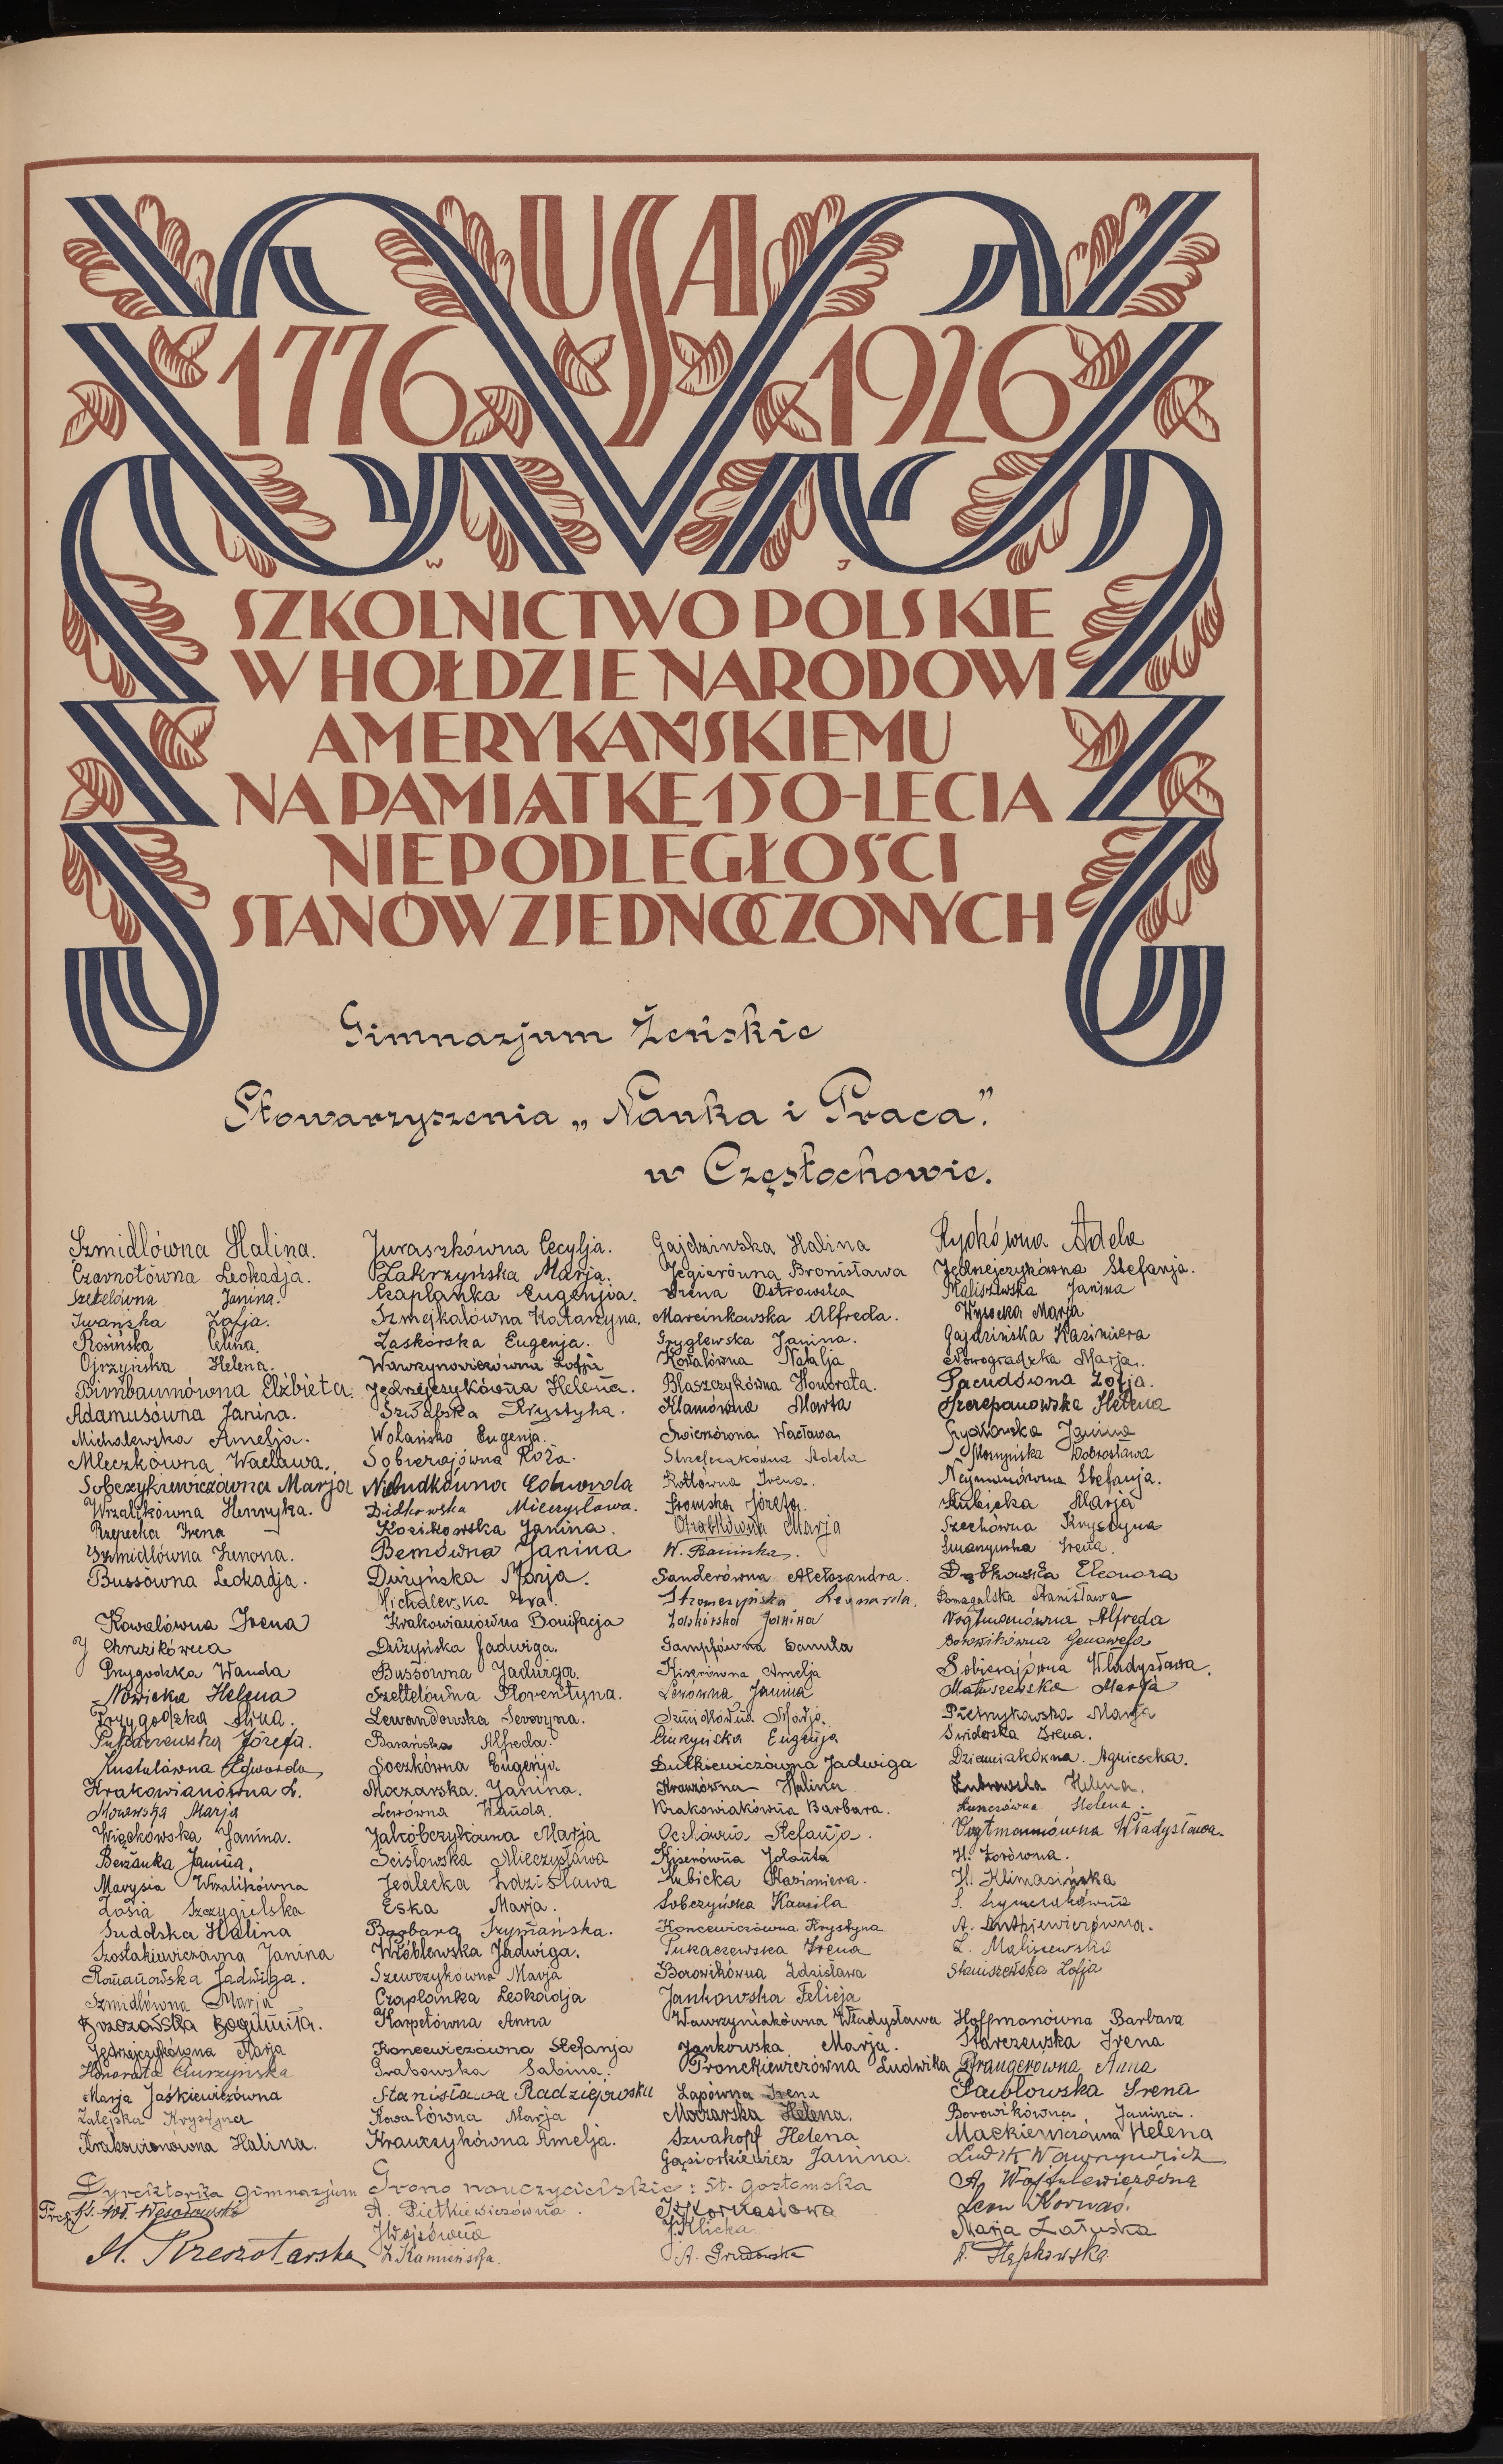 USA
1776 1926
W J
SZKOLNICTWO POLSKIE
W HOŁDZIE NARODOWI
AMERYKAŃSKIEMU
NA PAMIĄTKĘ 150-LECIA
NIEPODLEGŁOŚCI
STANÓW ZJEDNOCZONYCH
Gimnazjum Żeńskie
Stowarzyszenia „Nauka i Praca."
w Częstochowie.
Szmidlówna Halina.
Czarnotówna Leokadja.
Szetelówna Janina.
Iwańska Zofja.
Rosińska Celina.
Ojrzyńska Helena.
Birnbaumówna Elżbieta.
Adamusówna Janina.
Michalewska Amelja.
Mleczkówna Wacława.
Sobczykiewiczówna Marja
Wrzalikówna Henryka.
Rzepecka Irena
Szmidlówna Zenona.
Bussówna Leokadja.
Kowalówna Irena
J Chruzikówna
Przygodzka Wanda
Nowicka Helena
Przygodzka Alina.
Józefa.
Kustalówna Edwarda
Krakowianówna L.
Morawska Marja
Więckowska Janina.
Berżanka Janina.
Marysia Wrzalikówna
Zosia Szczygielska
Sudolska Halina
Szostakiewiczówna Janina
Romanowska Jadwiga.
Szmidlówna Marja
Brzozowska Bogumiła.
Jędrzejczykówna Marja
Honorata Ciurzyńska
Marja Jaśkiewiczówna
Zalejska Krystyna
Krakowianówna Halina.
Juraszkówna Cecylja.
Zakrzyńska Marja.
Czaplanka Eugenjia.
Szmejkalówna Katarzyna.
Zaskórska Eugenja.
Wawrzynowiczówna Zofja
Jędrzejczykówna Helena.
Szwabska Krystyna.
Wolańska Eugenja.
Sobierajówna Róża.
Niedudkówna Edwarda
Didkowska Mieczysława.
Kozikowska Janina.
Bemówna Janina
Dużyńska Marja.
Michalewska Ewa.
Krakowianówna Bonifacja
Dużyńska Jadwiga.
Bussówna Jadwiga.
Szettelówna Florentyna.
Lewandowska Seweryna.
Barańska Alfreda.
Soczkówna Eugenja
Moczarska Janina.
Lewówna Wanda.
Jakóbczykówna Marja
Ścisłowska Mieczysława
Jedlecka Zdzisława
Eska Marja.
Barbara Szymańska.
Wróblewska Jadwiga.
Szewczykówna Marja
Czaplanka Leokadja
Karpetówna Anna
Koncewiczówna Stefanja
Grabowska Sabina.
Stanisława Radziejowska
Kowalówna Marja
Krawczykówna Amelja.
Gajdzinska Halina
Jegierówna Bronisława
Irena Ostrowska
Marcinkowska Alfreda.
Gryglewska Janina.
Kowalówna Natalja
Błaszczykówna Honorata.
Klamówna Marta
Świerzówna Wacława
Strzelczakówna Adela
Kotłówna Irena
Sromska Józefa
Otrąbkówna Marja
W. Basińska.
Sanderówna Aleksandra.
Stromczyńska Leonarda.
Zaskórska Janina
Gampfówna Danuta
Kiserówna Amelja
Lewówna Janina
Szmidlówna Marja.
Ciurzyńska Eugenja
Dutkiewiczówna Jadwiga
Krauzówna Halina
Krakowiakówna Barbara.
Oczlówna Stefanja.
Kiserówna Jolanta
Kubicka Kazimiera.
Sobczyńska Kamila
Koncewiczówna Krystyna
Pukaczewska Irena
Borowikówna Zdzisława
Jankowska Felicja
Wawrzyniakówna Władysława
Jankowska Marja.
Fronckiewiczówna Ludwika
Lapówna Irena
Moczarska Helena.
Szwakopf Helena
Gąsiorkiewicz Janina.
Rydkówna Adela
Jędrzejczykówna Stefanja.
Maliszewska Janina
Wysocka Marja
Gajdzińska Kazimiera
Nowogradzka Marja.
Pacudówna Zofja.
Szczepanowska Helena
Grychowska Janina
Moszyńska Dobrosława
Neymanówna Stefanja.
Kubicka Marja
Szechówna Krystyna
Irena.
Dąbkowska Eleonora
Domagalska Stanisława
Vogtmanówna Alfreda
Borowikówna Genowefa
Sobierajówna Władysława.
Matuszewska Marja
Pietrzykowska Marja
Świderska Irena.
Dziemiakówna Agnieszka.
Żubrowska Helena.
Helena.
Vogtmanówna Władysława.
H. Zorówna.
H. Klimasińska
S. Szymczakówna
A. Antkiewiczówna.
L. Maliszewska
Staniszewska Zofja
Hoffmanówna Barbara
Starczewska Irena
Prangerówna Anna
Pawłowska Irena
Borowikówna Janina.
Mackiewiczówna Helena
Dyrektorka Gimnazjum
H. Rzeszotarska
Grono nauczycielskie: St. Gostomska
A. Pietkiewiczówna.
J Wojsówna
Z. Kamieńska.
Kornasiowa
J. Klicka.
A. Grudowska
Ludwik Wawrzynowicz
A. Wojtulewiczówna
Leon Kornaś.
Marja Załuska
A. Stępkowska.